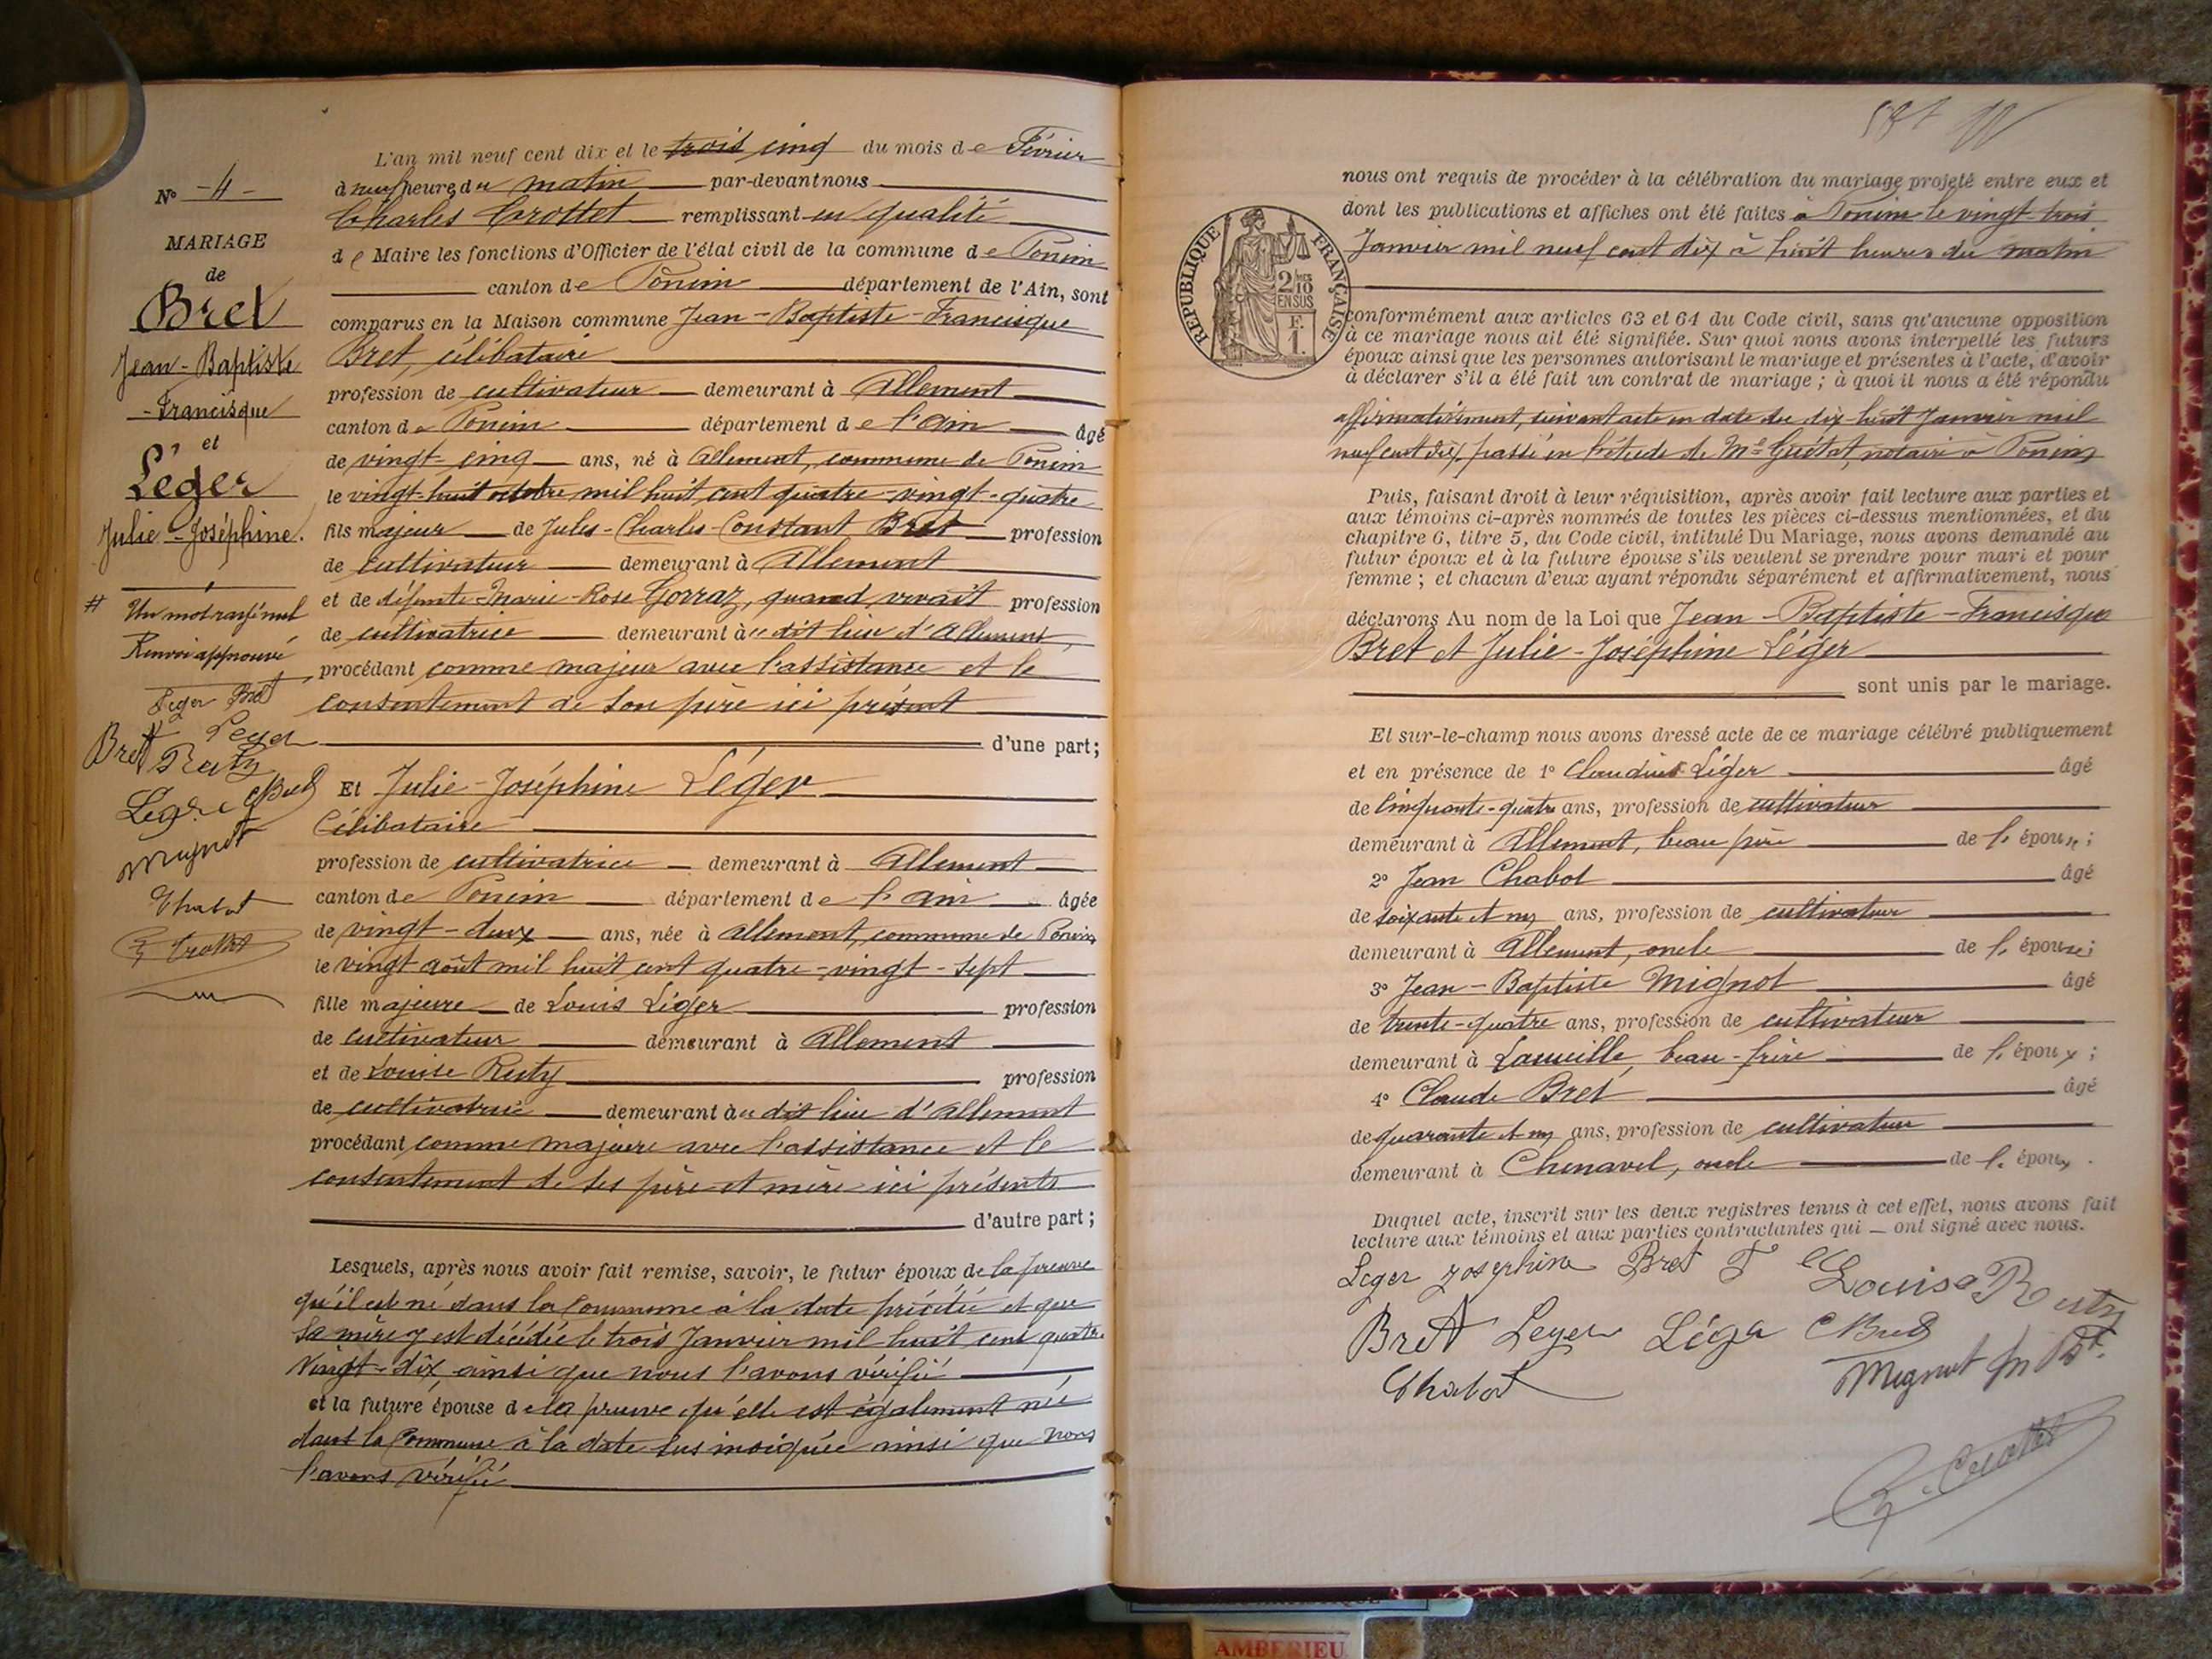 N° -4-
MARIAGE
de
Bret
Jean-Baptiste
-Francisque
et
Léger
Julie-Joséphine.
# Un mot rayé nul
Renvoi approuvé
Leger Bret
Bret Leger
Ruty
Léger CBret
Mignot
Chabot
C. Crottet
L'an mil neuf cent dix et le trois cinq du mois de Février
à neuf heures du matin par-devant nous
Charles Crottet remplissant en qualité
de Maire les fonctions d'Officier de l'état civil de la commune de Poncin
canton de Poncin département de l'Ain, sont
comparus en la Maison commune Jean-Baptiste-Francisque
Bret, célibataire
profession de cultivateur demeurant à Allement
canton de Poncin département de l'Ain âgé
de vingt-cinq ans, né à Allement, commune de Poncin
le vingt-huit octobre mil huit cent quatre-vingt-quatre
fils majeur de Jules-Charles-Constant Bret profession
de cultivateur demeurant à Allement
et de défunte Marie-Rose Gorraz, quand vivait profession
de cultivatrice demeurant au dit lieu d'Allement,
procédant comme majeur avec l'assistance et le
consentement de son père ici présent
d'une part;
Et Julie-Joséphine Léger
Célibataire
profession de cultivatrice demeurant à Allement
canton de Poncin département de l'Ain âgée
de vingt-deux ans, née à Allement, commune de Poncin
le vingt août mil huit cent quatre-vingt-sept
fille majeure de Louis Léger profession
de cultivateur demeurant à Allement
et de Louise Ruty profession
de cultivatrice demeurant au dit lieu d'Allement
procédant comme majeure avec l'assistance et le
consentement de ses père et mère ici présents
d'autre part;
Lesquels, après nous avoir fait remise, savoir, le futur époux de la preuve
qu'il est né dans la Commune à la date précitée et que
sa mère y est décédée le trois Janvier mil huit cent quatre
vingt-dix, ainsi que nous l'avons vérifié
et la future épouse de la preuve qu'elle est également née
dans la Commune à la date sus indiquée ainsi que nous
l'avons vérifié
RÉPUBLIQUE FRANÇAISE
2/10
EN SUS
F.
1.
nous ont requis de procéder à la célébration du mariage projeté entre eux et
dont les publications et affiches ont été faites à Poncin le vingt trois
Janvier mil neuf cent dix à huit heures du matin
conformément aux articles 63 et 64 du Code civil, sans qu'aucune opposition
à ce mariage nous ait été signifiée. Sur quoi nous avons interpellé les futurs
époux ainsi que les personnes autorisant le mariage et présentes à l'acte, d'avoir
à déclarer s'il a été fait un contrat de mariage; à quoi il nous a été répondu
affirmativement, suivant acte en date du dix huit Janvier mil
neuf cent dix, passé en l'étude de Me Guétat, notaire à Poncin
Puis, faisant droit à leur réquisition, après avoir fait lecture aux parties et
aux témoins ci-après nommés de toutes les pièces ci-dessus mentionnées, et du
chapitre 6, titre 5, du Code civil, intitulé Du Mariage, nous avons demandé au
futur époux et à la future épouse s'ils veulent se prendre pour mari et pour
femme; et chacun d'eux ayant répondu séparément et affirmativement, nous
déclarons Au nom de la Loi que Jean-Baptiste-Francisque
Bret et Julie-Joséphine Léger
sont unis par le mariage.
Et sur-le-champ nous avons dressé acte de ce mariage célébré publiquement
et en présence de 1° Claudius Léger âgé
de Cinquante-quatre ans, profession de cultivateur
demeurant à Allement, beau père de l'épouse;
2° Jean Chabot âgé
de soixante et un ans, profession de cultivateur
demeurant à Allement, oncle de l'épouse;
3° Jean-Baptiste Mignot âgé
de trente-quatre ans, profession de cultivateur
demeurant à beau-frère de l'époux;
4° Claude Bret âgé
de quarante et un ans, profession de cultivateur
demeurant à Chenavel, oncle de l'époux.
Duquel acte, inscrit sur les deux registres tenus à cet effet, nous avons fait
lecture aux témoins et aux parties contractantes qui ont signé avec nous.
Leger Josephine Bret F Louise Ruty
Bret Leger Léger CBret
Chabot Mignot Bt.
C. Crottet
AMBERIEU